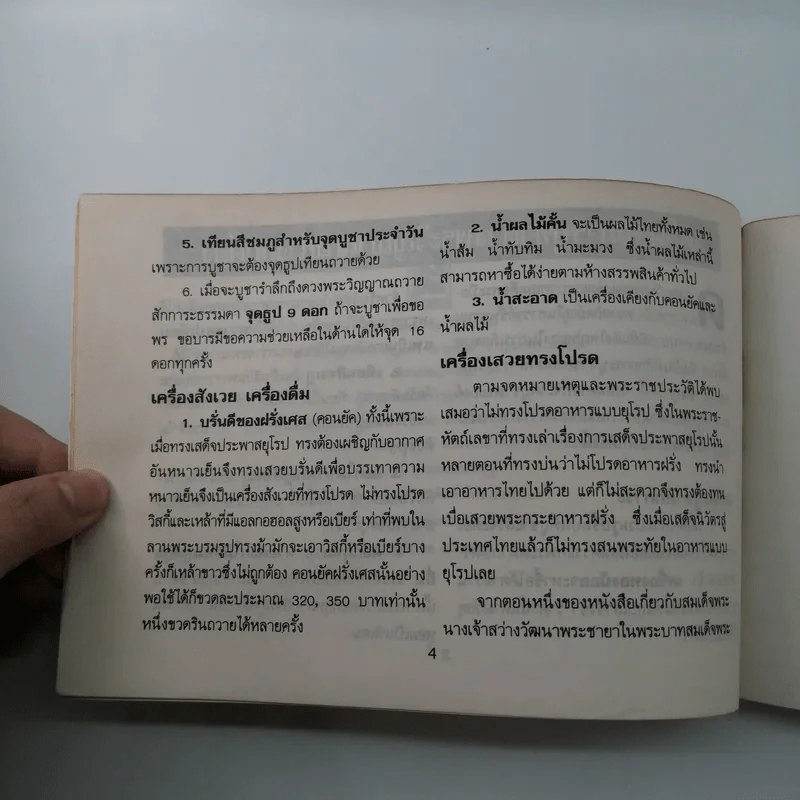 5. เทียนสีชมภูสำหรับจุดบูชาประจำวัน
เพราะการบูชาจะต้องจุดธูปเทียนถวายด้วย
6. เมื่อจะบูชารำลึกถึงดวงพระวิญญาณถวาย
สักการะธรรมดา จุดธูป 9 ดอก ถ้าจะบูชาเพื่อขอ
พร ขอบารมีขอความช่วยเหลือในด้านใดให้จุด 16
ดอกทุกครั้ง
เครื่องสังเวย เครื่องดื่ม
1. บรั่นดีของฝรั่งเศส (คอนยัค) ทั้งนี้เพราะ
เมื่อทรงเสด็จประพาสยุโรป ทรงต้องเผชิญกับอากาศ
อันหนาวเย็นจึงทรงเสวยบรั่นดีเพื่อบรรเทาความ
หนาวเย็นจึงเป็นเครื่องสังเวยที่ทรงโปรด ไม่ทรงโปรด
วิสกี้และเหล้าที่มีแอลกอฮอลสูงหรือเบียร์ เท่าที่พบใน
ลานพระบรมรูปทรงม้ามักจะเอาวิสกี้หรือเบียร์บาง
ครั้งก็เหล้าขาวซึ่งไม่ถูกต้อง คอนยัคฝรั่งเศสนั้นอย่าง
พอใช้ได้ก็ขวดละประมาณ 320, 350 บาทเท่านั้น
หนึ่งขวดรินถวายได้หลายครั้ง
2. น้ำผลไม้คั้น จะเป็นผลไม้ไทยทั้งหมด เช่น
น้ำส้ม น้ำทับทิม น้ำมะม่วง ซึ่งน้ำผลไม้เหล่านี้
สามารถหาซื้อได้ง่ายตามห้างสรรพสินค้าทั่วไป
3. น้ำสะอาด เป็นเครื่องเคียงกับคอนยัคและ
น้ำผลไม้
เครื่องเสวยทรงโปรด
ตามจดหมายเหตุและพระราชประวัติได้พบ
เสมอว่าไม่ทรงโปรดอาหารแบบยุโรป ซึ่งในพระราช-
หัตถ์เลขาที่ทรงเล่าเรื่องการเสด็จประพาสยุโรปนั้น
หลายตอนที่ทรงบ่นว่าไม่โปรดอาหารฝรั่ง ทรงนำ
เอาอาหารไทยไปด้วย แต่ก็ไม่สะดวกจึงทรงต้องทน
เบื่อเสวยพระกระยาหารฝรั่ง ซึ่งเมื่อเสด็จนิวัตรสู่
ประเทศไทยแล้วก็ไม่ทรงสนพระทัยในอาหารแบบ
ยุโรปเลย
จากตอนหนึ่งของหนังสือเกี่ยวกับสมเด็จพระ
นางเจ้าสว่างวัฒนาพระชายาในพระบาทสมเด็จพระ
4